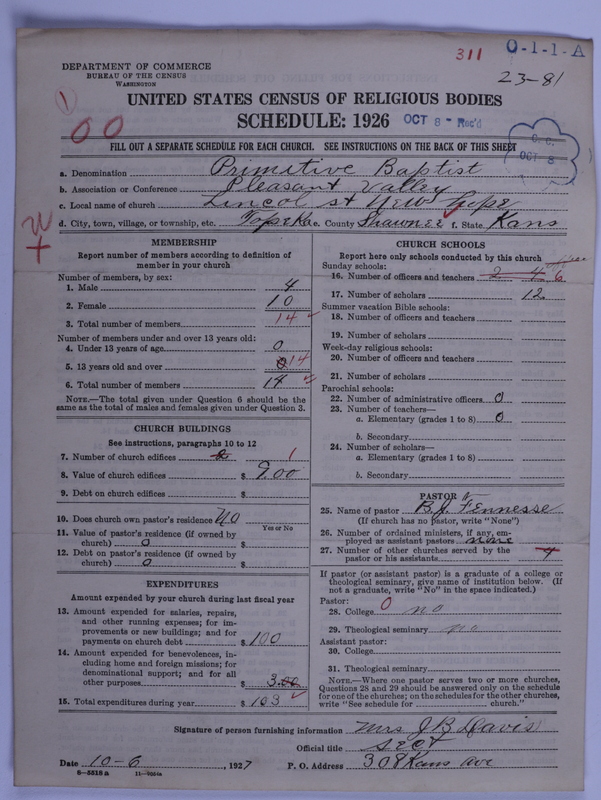 311 O-1-1-A
DEPARTMENT OF COMMERCE
BUREAU OF THE CENSUS
WASHINGTON
23-81
1
00
UNITED STATES CENSUS OF RELIGIOUS BODIES
SCHEDULE: 1926 OCT 8 - Rec'd
OCT 8
FILL OUT A SEPARATE SCHEDULE FOR EACH CHURCH. SEE INSTRUCTIONS ON THE BACK OF THIS SHEET
a. Denomination Primitive Baptist
b. Association or Conference Pleasant Valley
c. Local name of church Lincol st New Hope
d. City, town, village, or township, etc. Topeka e. County Shawnee f. State Kans
MEMBERSHIP
Report number of members according to definition of
member in your church
Number of members, by sex:
1. Male 4
2. Female 10
3. Total number of members 14
Number of members under and over 13 years old:
4. Under 13 years of age 0
5. 13 years old and over 0 14
6. Total number of members 14
NOTE.—The total given under Question 6 should be
same as the total of males and females given under Question 3.
CHURCH BUILDINGS
See instructions, paragraphs 10 to 12
7. Number of church edifices 1
8. Value of church edifices $ 900
9. Debt on church edifices $
10. Does church own pastor's residence? NO
Yes or No
11. Value of pastor's residence (if owned by
church) 0 $
12. Debt on pastor's residence (if owned by
church) 0 $
EXPENDITURES
Amount expended by your church during last fiscal year
13. Amount expended for salaries, repairs,
and other running expenses; for im-
provements or new buildings; and for
payments on church debt $ 100
14. Amount expended for benevolences, in-
cluding home and foreign missions; for
denominational support; and for all
other purposes $ 3.00
15. Total expenditures during year $ 103
CHURCH SCHOOLS
Report here only schools conducted by this church
Sunday schools:
16. Number of officers and teachers 2 4 6
17. Number of scholars 12
Summer vacation Bible schools:
18. Number of officers and teachers
19. Number of scholars
Week-day religious schools:
20. Number of officers and teachers
21. Number of scholars
Parochial schools:
22. Number of administrative officers 0
23. Number of teachers—
a. Elementary (grades 1 to 8) 0
b. Secondary
24. Number of scholars—
a. Elementary (grades 1 to 8)
b. Secondary
PASTOR
25. Name of pastor B. J. Fennesse
(If church has no pastor, write "None")
26. Number of ordained ministers, if any, em-
ployed as assistant pastors none
27. Number of other churches served by the
pastor or his assistants 4
If pastor (or assistant pastor) is a graduate of a college or
theological seminary, give name of institution below. (If
not a graduate, write "No" in the space indicated.)
Pastor: 0
28. College no
29. Theological seminary no
Assistant pastor:
30. College
31. Theological seminary
NOTE.—Where one pastor serves two or more churches,
Questions 28 and 29 should be answered only on the schedule
for one of the churches; on the schedules for the other churches,
write "See schedule for church."
Signature of person furnishing information Mrs J B Davis
Official title Sect
Date 10-6, 1927 P. O. Address 308 Kans Ave
8-5518a 11-9054a